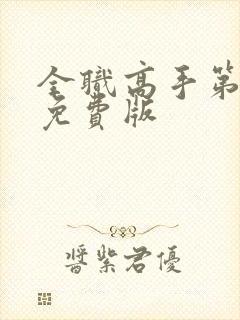 全職高手第
免費版
醬紫君優